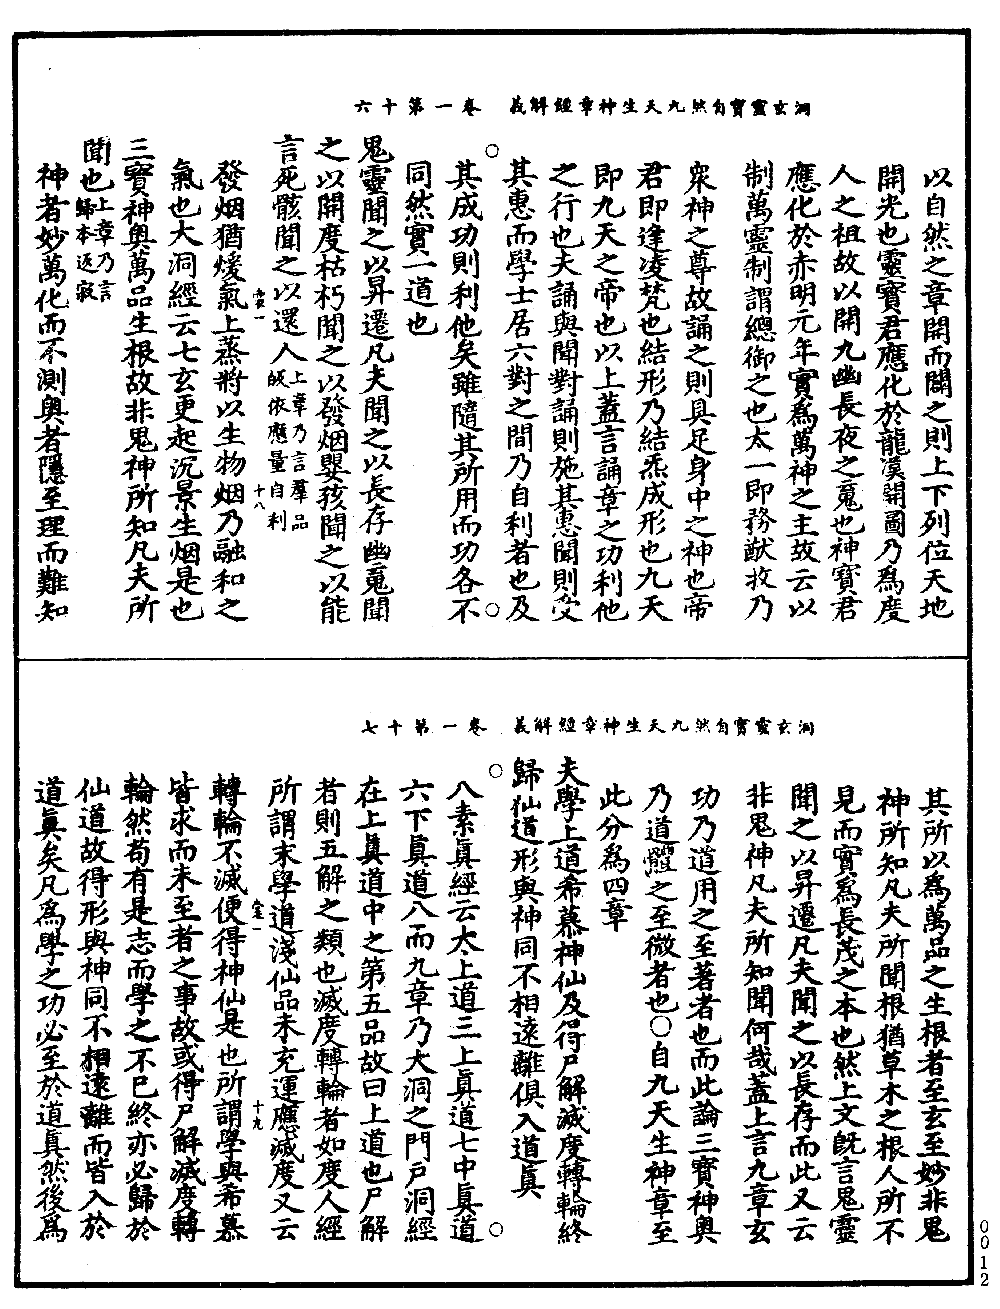 洞玄靈寶自然九天生神章經解義　卷一第十六
以自然之章開而闢之則上下列位天地
開光也靈寶君應化於龍漢開圖乃爲度
人之祖故以開九幽長夜之䰟也神寶君
應化於赤明元年實爲萬神之主故云以
制萬靈制謂總御之也太一即務猷收乃
衆神之尊故誦之則具足身中之神也帝
君即逢凌梵也結形乃結炁成形也九天
即九天之帝也以上蓋言誦章之功利他
之行也夫誦與聞對誦則施其惠聞則受
其惠而學士居六對之間乃自利者也及
其成功則利他矣雖隨其所用而功各不
同然實一道也
鬼靈聞之以昇遷凡夫聞之以長存幽䰟聞
之以開度枯朽聞之以發烟嬰孩聞之以能
言死骸聞之以還人上章乃言羣品皈依應量自利
發烟猶煖氣上蒸將以生物烟乃融和之
氣也大洞經云七玄更起沉景生烟是也
三寶神奧萬品生根故非鬼神所知凡夫所
聞也上章乃言歸本返寂
神者妙萬化而不測奧者隱至理而難知
洞玄靈寶自然九天生神章經解義　卷一第十七
其所以爲萬品之生根者至玄至妙非鬼
神所知凡夫所聞根猶草木之根人所不
見而實爲長茂之本也然上文旣言鬼靈
聞之以昇遷凡夫聞之以長存而此又云
非鬼神凡夫所知聞何哉蓋上言九章玄
功乃道用之至著者也而此論三寶神奧
乃道體之至微者也○自九天生神章至
此分爲四章
夫學上道希慕神仙及得尸解滅度轉輪終
歸仙道形與神同不相遠離俱入道真
八素真經云太上道三上真道七中真道
六下真道八而九章乃大洞之門戶洞經
在上真道中之第五品故曰上道也尸解
者則五解之類也滅度轉輪者如度人經
所謂末學道淺仙品未充運應滅度又云
轉輪不滅便得神仙是也所謂學與希慕
皆求而未至者之事故或得尸解滅度轉
輪然苟有是志而學之不已終亦必歸於
仙道故得形與神同不相遠離而皆入於
道真矣凡爲學之功必至於道真然後爲
0012